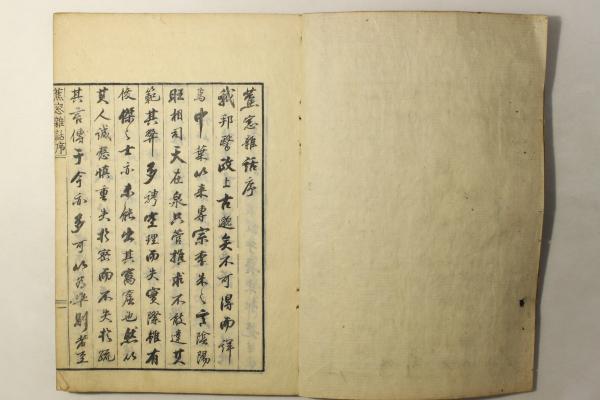 蕉窓雜話序
我邦醫政上古邈矣不可得而詳
焉中葉以來專宗李朱之言陰陽
旺相司天在泉只管推求不敢違其
範其弊多騁空理而失實際雖有
俊傑之士亦未能出其窩窟也然以
其人誠愨慎重失於密而不失於疏
其言傳于今亦多可以為準則者至
蕉窓雜話序
一